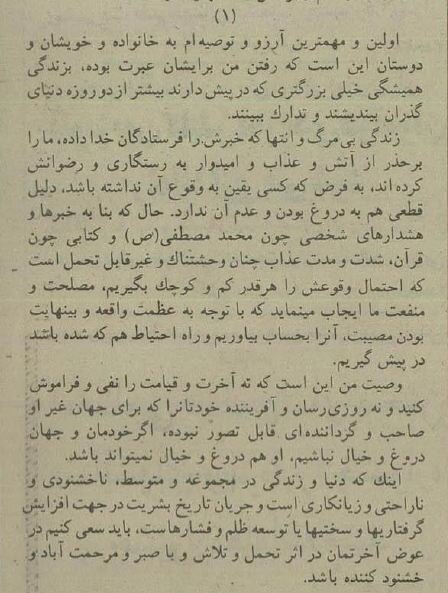 (۱)
اولین و مهمترین آرزو و توصیه‌ام به خانواده و خویشان و
دوستان این است که رفتن من برایشان عبرت بوده، بزندگی
همیشگی خیلی بزرگتری که در پیش دارند بیشتر از دو روزه دنیای
گذران بیندیشند و تدارك ببینند.
زندگی بی‌مرگ و انتها که خبرش را فرستادگان خدا داده، ما را
برحذر از آتش و عذاب و امیدوار به رستگاری و رضوانش
کرده‌اند، به فرض که کسی یقین به وقوع آن نداشته باشد، دلیل
قطعی هم به دروغ بودن و عدم آن ندارد. حال که بنا به خبرها و
هشدارهای شخصی چون محمد مصطفی(ص) و کتابی چون
قرآن، شدت و مدت عذاب چنان وحشتناك و غیرقابل تحمل است
که احتمال وقوعش را هرقدر کم و کوچك بگیریم، مصلحت و
منفعت ما ایجاب مینماید که با توجه به عظمت واقعه و بینهایت
بودن مصیبت، آنرا بحساب بیاوریم و راه احتیاط هم که شده باشد
در پیش گیریم.
وصیت من این است که نه آخرت و قیامت را نفی و فراموش
کنید و نه روزی‌رسان و آفریننده خودتانرا که برای جهان غیر او
صاحب و گرداننده‌ای قابل تصور نبوده، اگر خودمان و جهان
دروغ و خیال نباشیم، او هم دروغ و خیال نمیتواند باشد.
اینك که دنیا و زندگی در مجموعه و متوسط، ناخشنودی و
ناراحتی و زیانکاری است و جریان تاریخ بشریت در جهت افزایش
گرفتاریها و سختیها یا توسعه ظلم و فشارهاست، باید سعی کنیم در
عوض آخرتمان در اثر تحمل و تلاش و با صبر و مرحمت آباد و
خشنود کننده باشد.